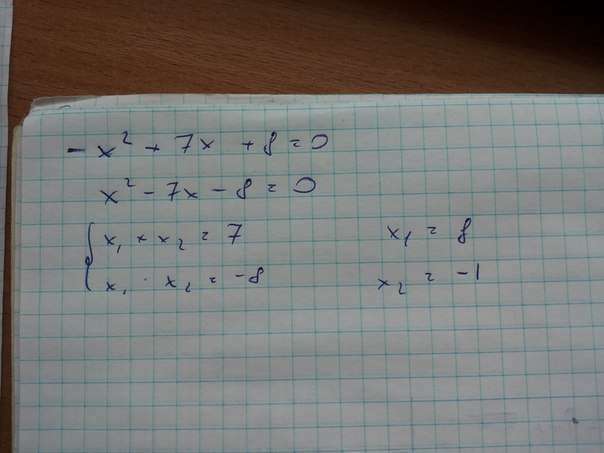 - x² + 7x + 8 = 0
x² - 7x - 8 = 0
{ x₁ + x₂ = 7 x₁ = 8
x₁ · x₂ = -8 x₂ = -1